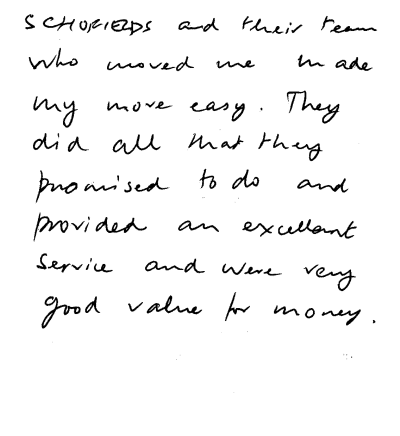 SCHOFIELDS and their team
who moved me made
my more easy. They
did all that they
promised to do and
provided an excellant
service and were very
good value for money.